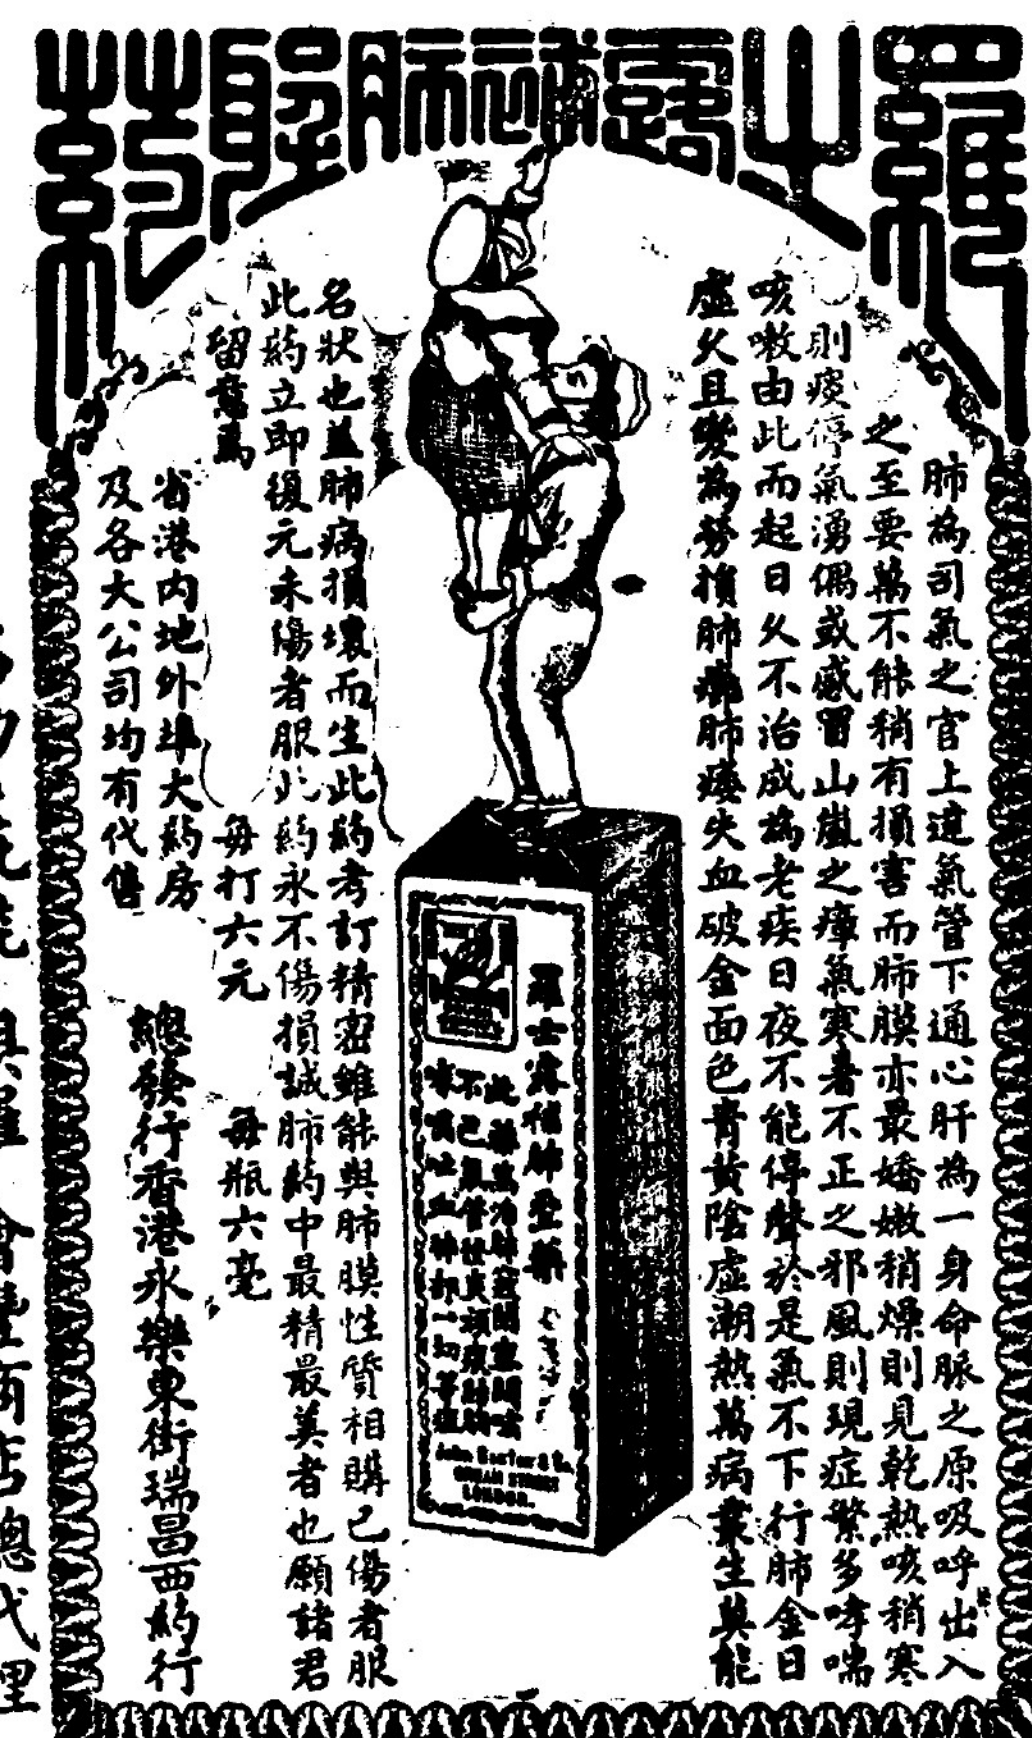 羅士露補肺聖藥
肺為司氣之官上連氣管下通心肝為一身命脈之原吸呼出入
之至要萬不能稍有損害而肺膜亦最嬌嫩稍燥則見乾熱咳稍寒
則痰停氣湧偶或感冒山嵐之瘴氣寒暑不正之邪風則現症繁多哮喘
咳嗽由此而起日久不治成為老疾日夜不能停聲於是氣不下行肺金日
虛久且變為勞損肺癆肺痿失血破金面色青黃陰虛潮熱萬病叢生莫能
名狀也蓋肺病損壞而生此葯考訂精密雖能與肺膜性質相購已傷者服
此葯立即復元未傷者服此葯永不傷損誠肺葯中最精最美者也願諸君
留意焉
每打六元
每瓶六毫
省港內地外埠大葯房
及各大公司均有代售
總發行香港永樂東街瑞昌西葯行
羅士露補肺聖藥
此藥
不已氣管
吐血肺部一切等症
John
STREET
LONDON.
總代理